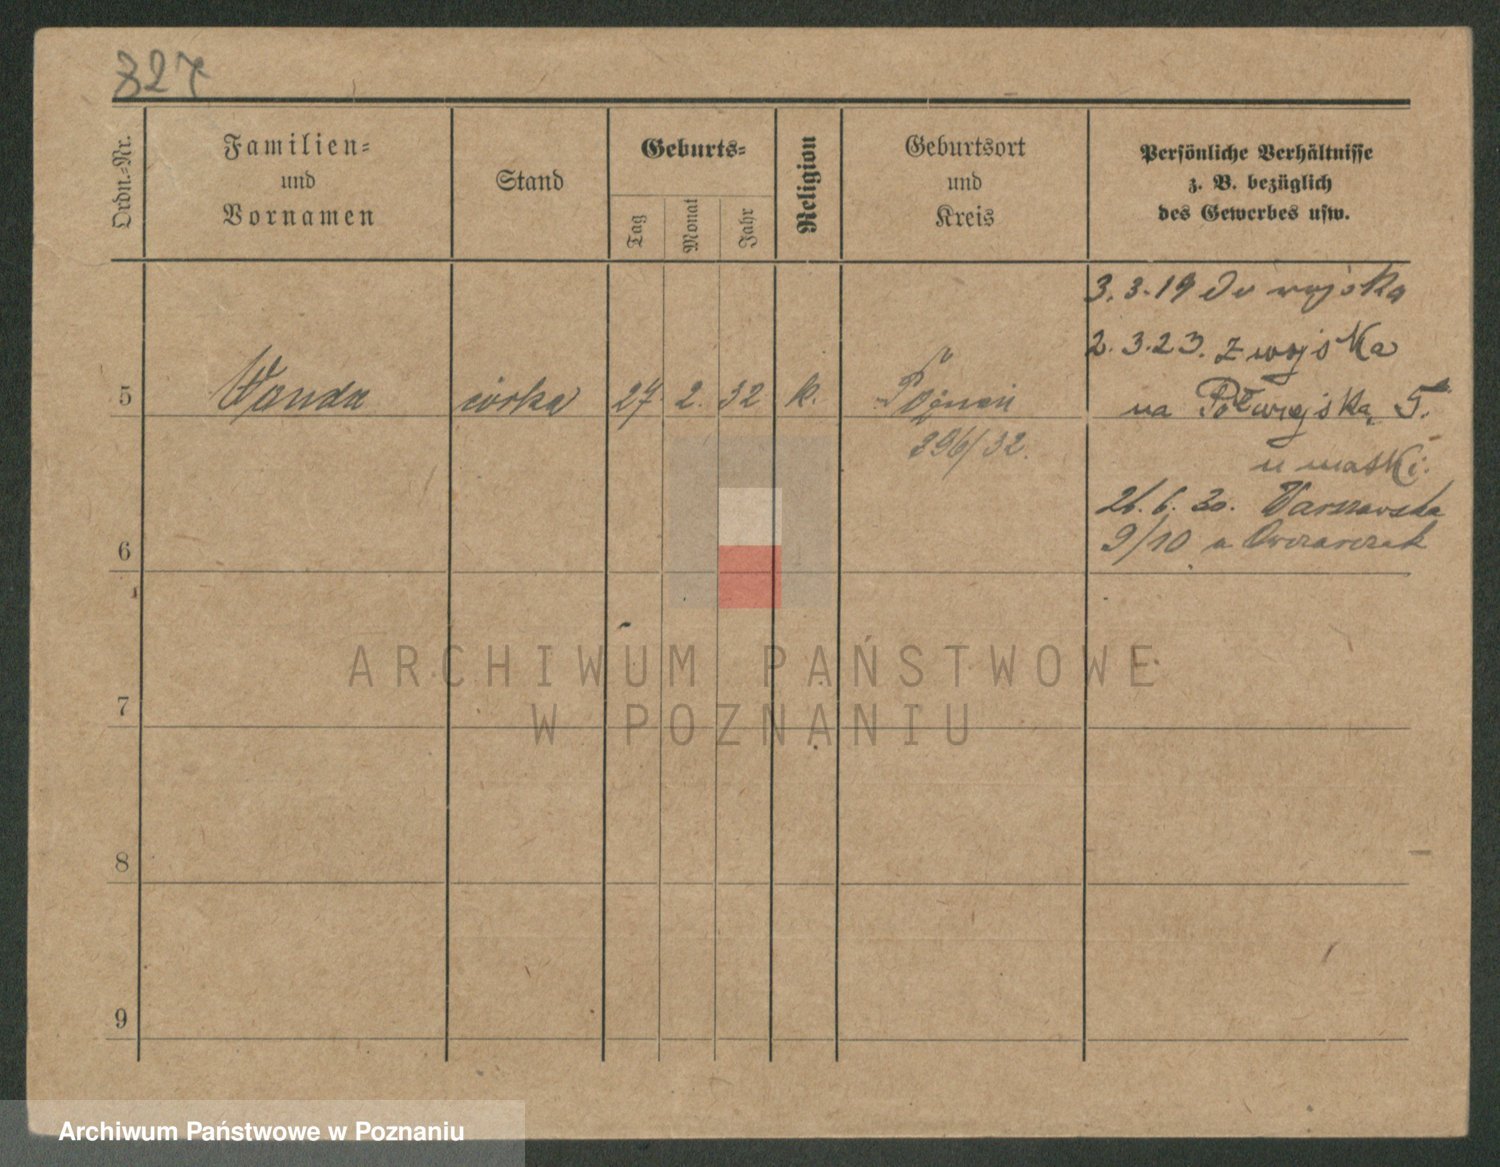 827
Ordn.-Nr.
Familien-
und
Vornamen
Stand
Geburts-
Tag
Monat
Jahr
Religion
Geburtsort
und
Kreis
Persönliche Verhältnisse
z. B. bezüglich
des Gewerbes usw.
3.3.19 do wojska
2.3.23. z wojska
5 Wanda córka 27. 2. 32 k. Poznań na Półwiejską 5.
396/32. u matki.
26.6.30. Warszawska
6 9/10 a Owczarczak
7
8
9
ARCHIWUM PAŃSTWOWE
W POZNANIU
Archiwum Państwowe w Poznaniu